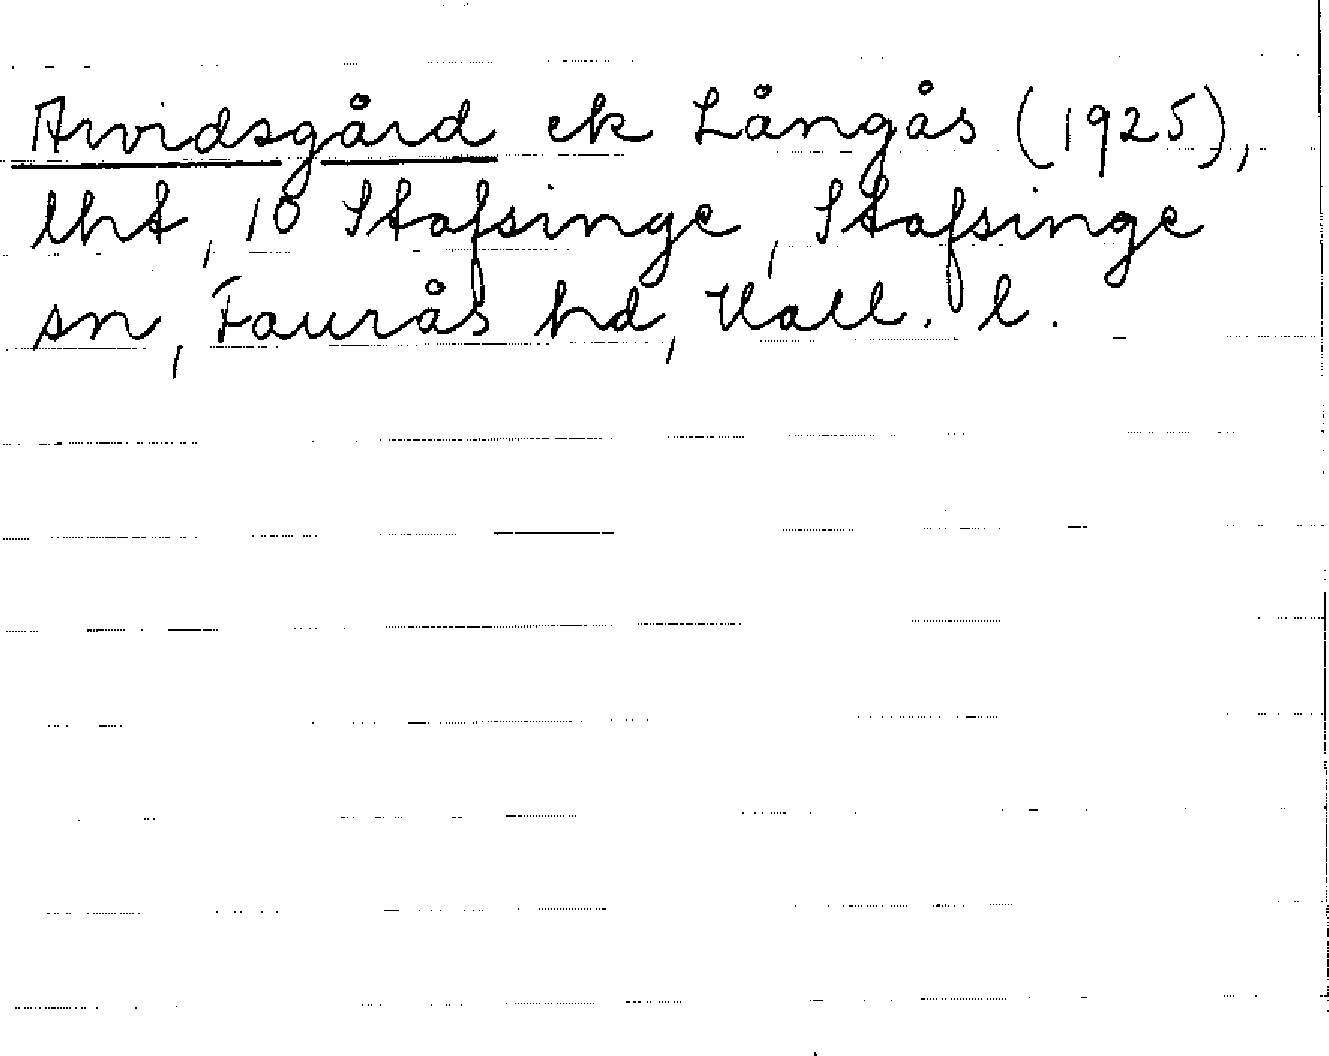 Arvidsgård ek Långås (1925),
lht, 10 Stafsinge, Stafsinge
sn, Faurås hd, Hall. l.